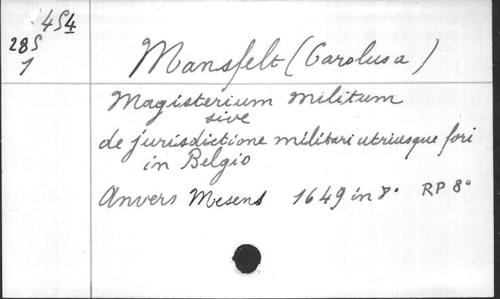 454
285
1
Mansfelt (Carolus a)
Magisterium militum
sive
de jurisdictione militari utriusque fori
in Belgio
Anvers Mesens 1649 in 8° RP 8°